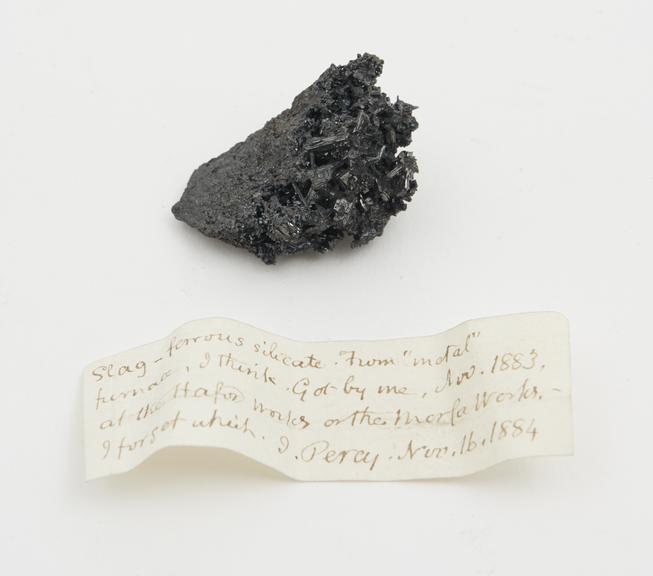 Slag - ferrous silicate. From "metal"
furnace, I think. Got by me, Nov. 1883,
at the Hafod Works or the Morfa Works. -
I forget which. J. Percy. Nov. 16, 1884